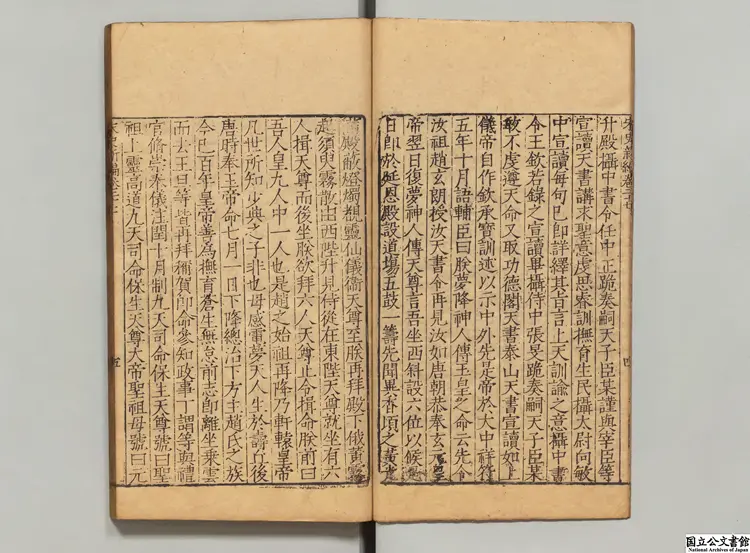 升殿攝中書令任中正跪奏嗣天子臣某謹與宰臣等
宣讀天書講求聖意虔思奉訓撫育生民攝太尉向敏
中宣讀每句已即詳繹其旨言上天訓諭之意攝中書
令王欽若錄之宣讀畢攝侍中張旻跪奏嗣天子臣某
敢不虔遵天命又取功德閣天書泰山天書宣讀如上
儀帝自作欽承寶訓述以示中外先是帝於大中祥符
五年十月語輔臣曰朕夢降神人傳玉皇之命云先令
汝祖趙玄朗授汝天書令再見汝如唐朝恭奉玄元
帝翌日復夢神人傳天尊言吾坐西斜設六位以候
日即於延恩殿設道場五鼓一籌先聞異香頃之黃光
殿蔽燈燭覩靈仙儀衛天尊至朕再拜殿下俄黃霧
起須臾霧散由西陛升見侍從在東陛天尊就坐有六
人揖天尊而後坐朕欲拜六人天尊止令揖命朕前曰
吾人皇九人中一人也是趙之始祖再降乃軒轅皇帝
凡世所知少典之子非也母感電夢天人生於壽丘後
唐時奉玉帝命七月一日下降總治下方主趙氏之族
今已百年皇帝善為撫育蒼生無怠前志即離坐乘雲
而去王旦等皆再拜稱賀即命參知政事丁謂等與禮
官修崇奉儀注閏十月制九天司命保生天尊號曰聖
祖上靈高道九天司命保生天尊大帝聖祖母號曰元
五
国立公文書館
National Archives of Japan